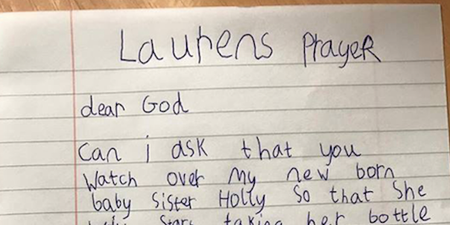 Laurens prayer
dear God
Can i ask that you
Watch over my new born
baby Sister Holly So that She
Stars taking her bottle